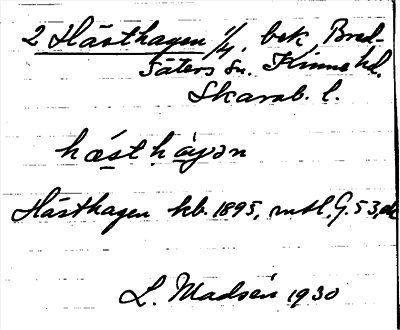 2 Hästhagen 1/4, bek Bred-
säters sn. Kinne hd.
Skarab. l.
hæst hagən
Hästhagen kb. 1895, mtl, G. 53, ek
L. Madsén 1930